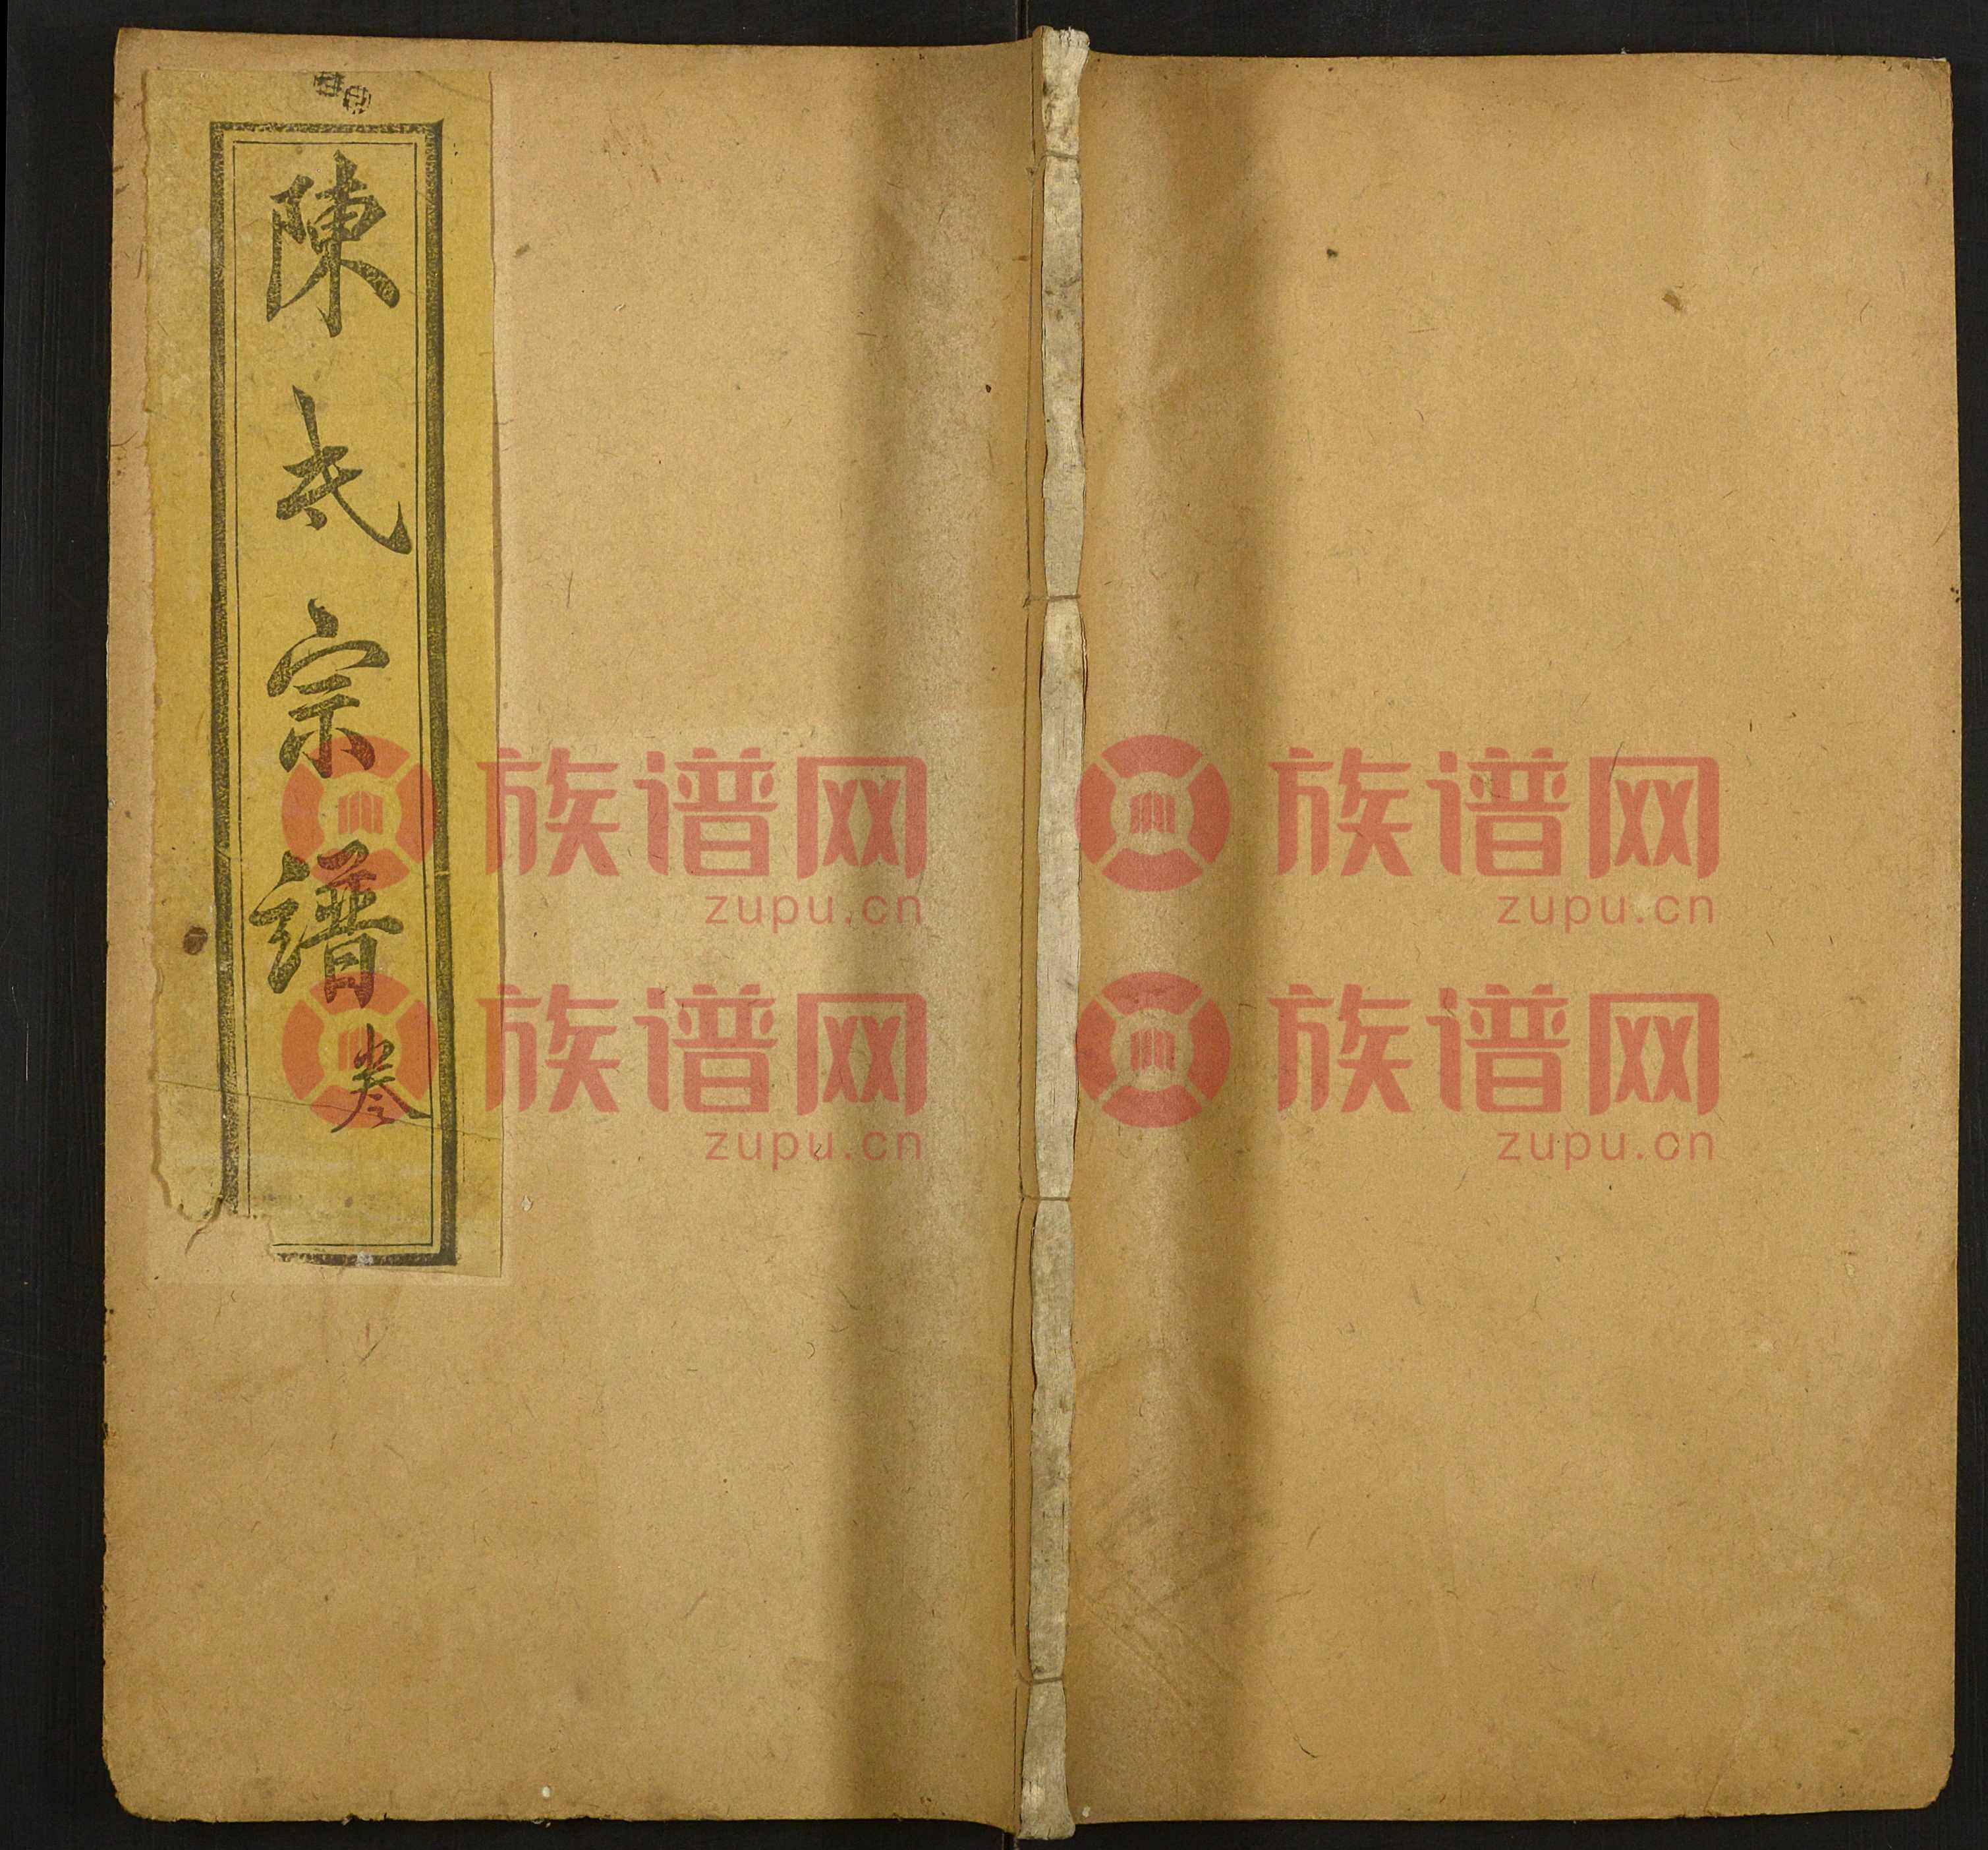 陳氏宗譜
卷
族谱网
zupu.cn
族谱网
zupu.cn
族谱网
zupu.cn
族谱网
zupu.cn